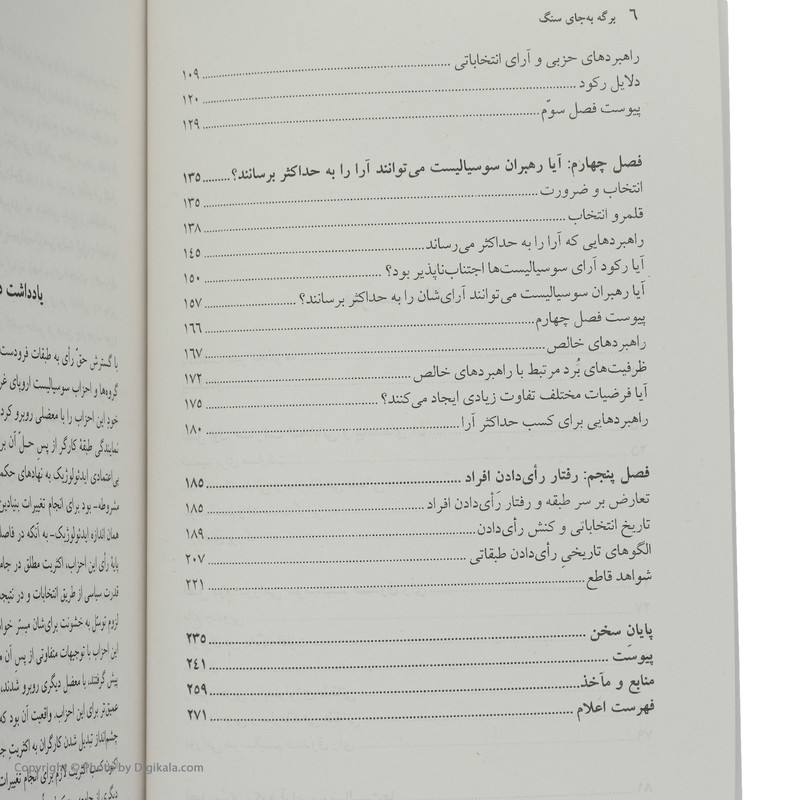 ٦ برگه به‌جای سنگ
راهبردهای حزبی و آرای انتخاباتی ۱۰۹
دلایل رکود ۱۲۰
پیوست فصل سوّم ۱۲۹
فصل چهارم: آیا رهبران سوسیالیست می‌توانند آرا را به حداکثر برسانند؟ ۱۳۵
انتخاب و ضرورت ۱۳۵
قلمرو انتخاب ۱۳۸
راهبردهایی که آرا را به حداکثر می‌رساند ۱۴۵
آیا رکود آرای سوسیالیست‌ها اجتناب‌ناپذیر بود؟ ۱۵۰
آیا رهبران سوسیالیست می‌توانند آرای‌شان را به حداکثر برسانند؟ ۱۵۷
پیوست فصل چهارم ۱۶۶
راهبردهای خالص ۱۶۷
ظرفیت‌های بُرد مرتبط با راهبردهای خالص ۱۷۲
آیا فرضیات مختلف تفاوت زیادی ایجاد می‌کنند؟ ۱۷۵
راهبردهایی برای کسب حداکثر آرا ۱۸۰
فصل پنجم: رفتار رأی‌دادن افراد ۱۸۵
تعارض بر سر طبقه و رفتار رَأی‌دادن افراد ۱۸۵
تاریخ انتخاباتی و کنش رأی‌دادن ۱۸۹
الگوهای تاریخیِ رأی‌دادن طبقاتی ۲۰۷
شواهد قاطع ۲۲۱
پایان سخن ۲۳۵
پیوست ۲۴۱
منابع و مآخذ ۲۵۹
فهرست اعلام ۲۷۱
یادداشت
با گسترش حق رأی به طبقات فرودست
گروه‌ها و احزاب سوسیالیست اروپای
خود این احزاب را با معضلی روبرو کرد
نمایندگی طبقهٔ کارگر از پسِ حلّ آن
بی‌اعتمادی ایدئولوژیک به نهادهای
مشروطه– بود برای انجام تغییرات
همان اندازه ایدئولوژیک– به آنکه در
پایهٔ رأی این احزاب، اکثریت مطلق در
قدرت سیاسی از طریق انتخابات و در
لزوم توسّل به خشونت برای‌شان میسّر
این احزاب با توجیهات متفاوتی از پسِ آن
پیش گرفتند، با معضل دیگری روبرو شدند،
عمیق‌تر برای این احزاب. واقعیت آن بود که
چشم‌انداز تبدیل شدن کارگران به اکثریتِ
اکنون کسب اکثریت لازم برای انجام تغییرات
Copyright © Photo by Digikala.com